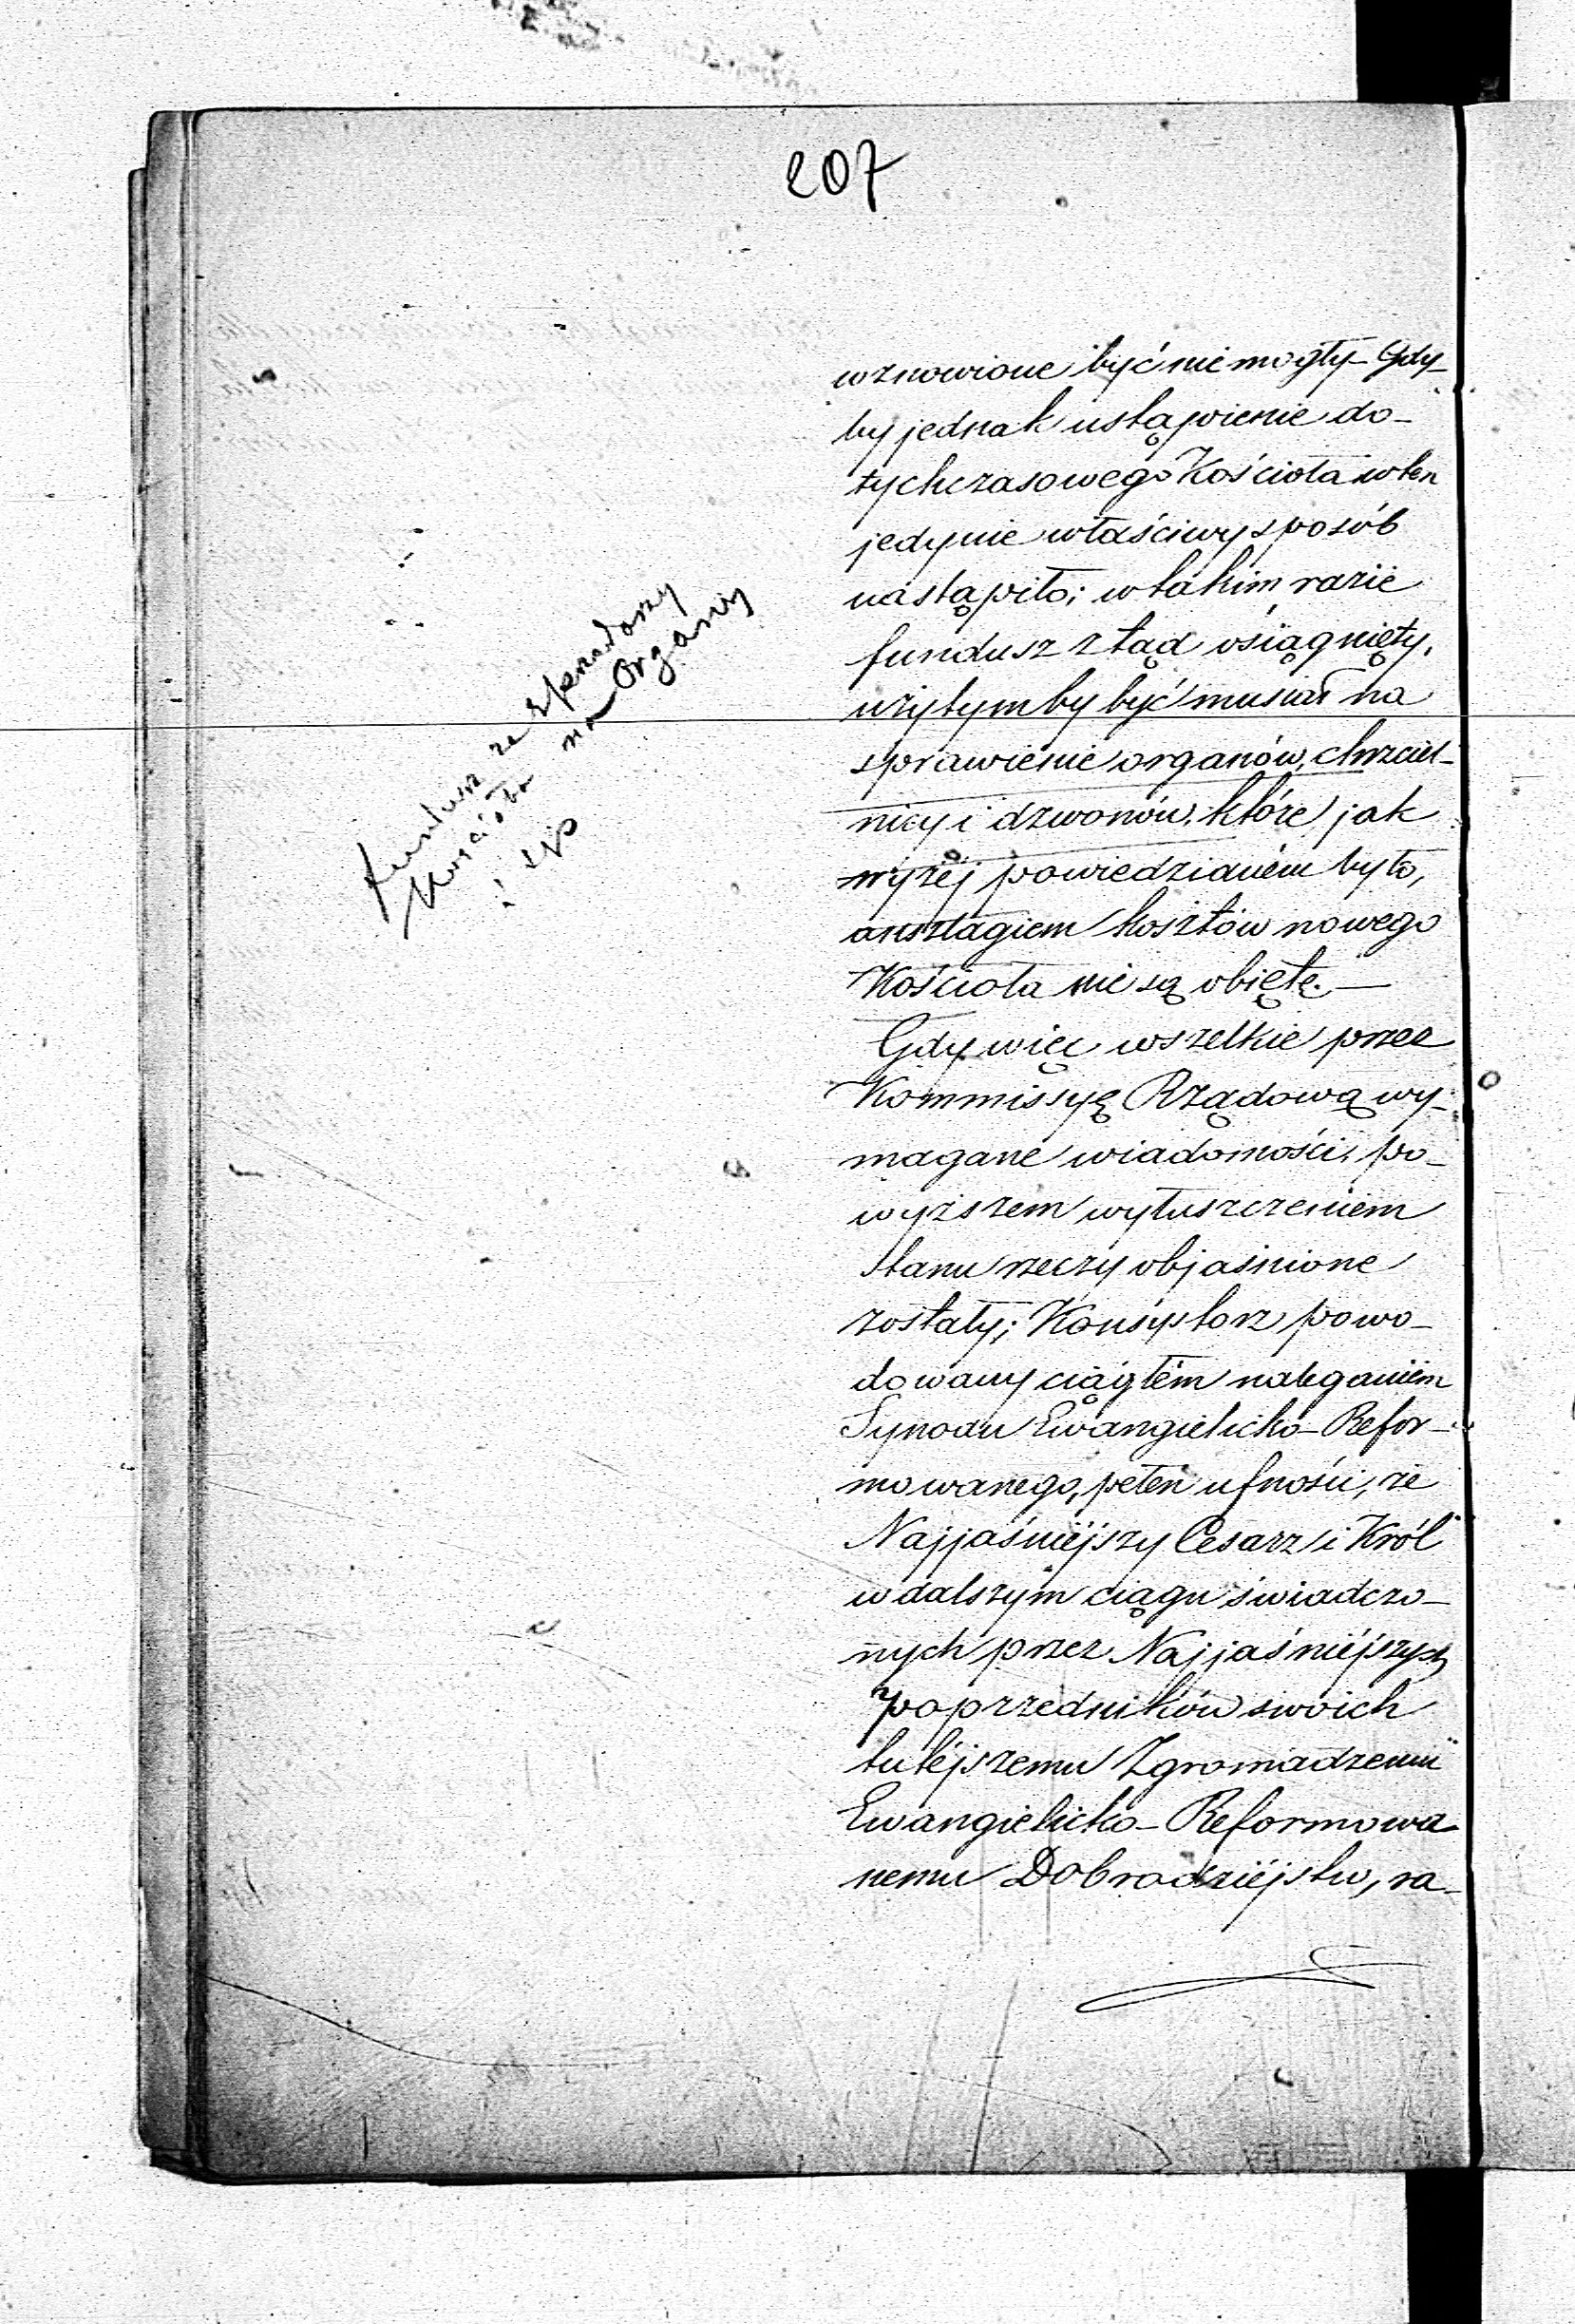 207
wznowione być nie mogły – Gdy-
by jednak ustąpienie do-
tychczasowego Kościoła w ten
jedynie właściwy sposób
nastąpiło; w takim razie
fundusz ztąd osiągnięty,
użytym by być musiał na
sprawienie organów, chrzciel-
nicy i dzwonów, które jak
wyżéj powiedzianém było,
anszlagiem kosztów nowego
Kościoła nie są obięte. —
Gdy więc wszelkie przez
Kommissyę Rządową wy-
magane wiadomości, po-
wyższem wyłuszczeniem
stanu rzeczy objaśnione
zostały; Konsystorz powo-
dowany ciągłém naleganiem
Synodu Ewangielicko-Refor-
mowanego, pełen ufności, że
Najjaśniéjszy Cesarz i Król
w dalszym ciągu świadczo-
nych przez Najjaśniéjszych
Poprzedników swoich
tutéjszemu Zgromadzeniu
Ewangielicko-Reformowa
nemu Dobrodziéjstw, ra-
Fundusz ze sprzedaży
Kościoła na Organy
i